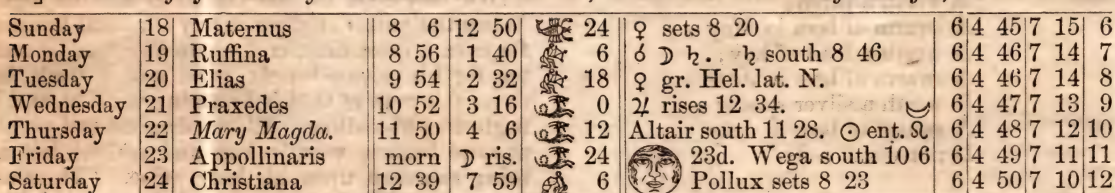 Sunday 18 Maternus 8 6 12 50 24 ♀ sets 8 20 6 4 45 7 15 6
Monday 19 Ruffina 8 56 1 40 6 ☌ ☽ ♄. ♄ south 8 46 6 4 46 7 14 7
Tuesday 20 Elias 9 54 2 32 18 ♀ gr. Hel. lat. N. 6 4 46 7 14 8
Wednesday 21 Praxedes 10 52 3 16 0 ♃ rises 12 34. 6 4 47 7 13 9
Thursday 22 Mary Magda. 11 50 4 6 12 Altair south 11 28. ☉ ent. ♌ 6 4 48 7 12 10
Friday 23 Appollinaris morn ☽ ris. 24 23d. Wega south 10 6 6 4 49 7 11 11
Saturday 24 Christiana 12 39 7 59 6 Pollux sets 8 23 6 4 50 7 10 12